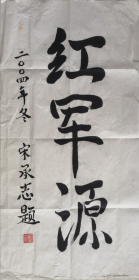 红军源
二〇〇四年冬
宋承志题